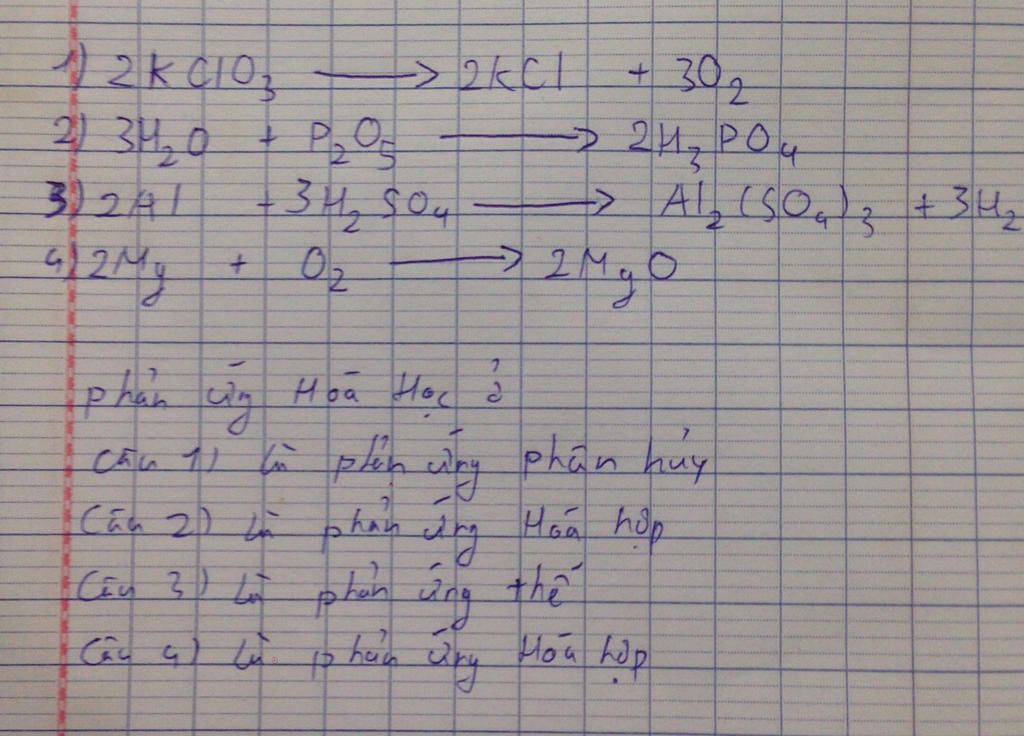 1) 2KClO3 → 2KCl + 3O2
2) 3H2O + P2O5 → 2H3PO4
3) 2Al + 3H2SO4 → Al2(SO4)3 + 3H2
4) 2Mg + O2 → 2MgO
phản ứng Hoá Học ở
Câu 1) là phản ứng phân hủy
Câu 2) là phản ứng Hoá hợp
Câu 3) là phản ứng thế
Câu 4) là phản ứng Hoá hợp